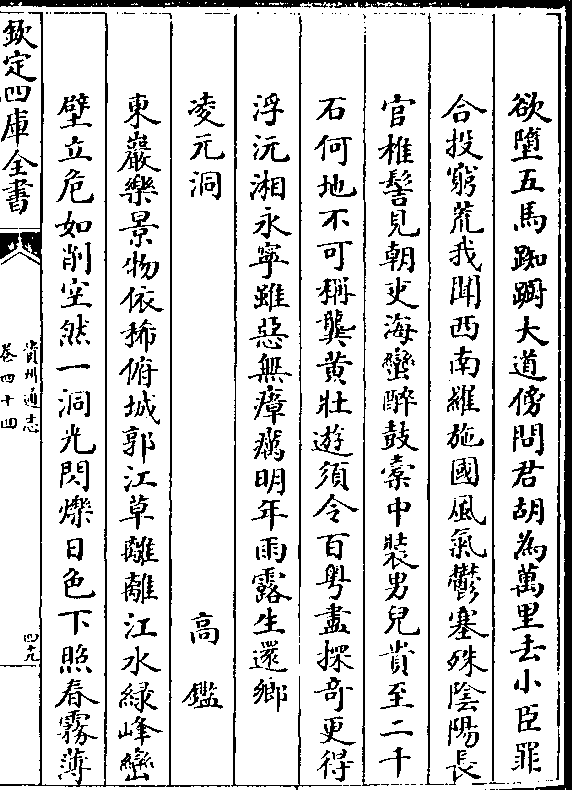 欲墮五馬踟躕大道傍問君胡為萬里去小臣罪
合投窮荒我聞西南羅施國風氣鬱塞殊陰陽長
官椎髻見朝吏海蠻醉鼓橐中裝男兒貴至二千
石何地不可稱龔黃壯遊須令百粤盡探奇更得
浮沅湘永寧雖惡無瘴癘明年雨露生還鄉
凌元洞 高鑑
東巖樂景物依稀俯城郭江草離離江水綠峰巒
壁立危如削空然一洞光閃爍日色下照春霧薄
欽定四庫全書
貴州通志
卷四十四
四十九